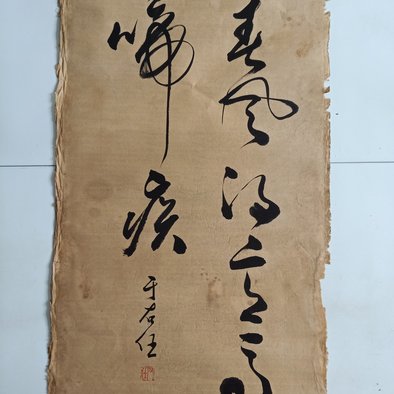 春风得意马
蹄疾
于右任